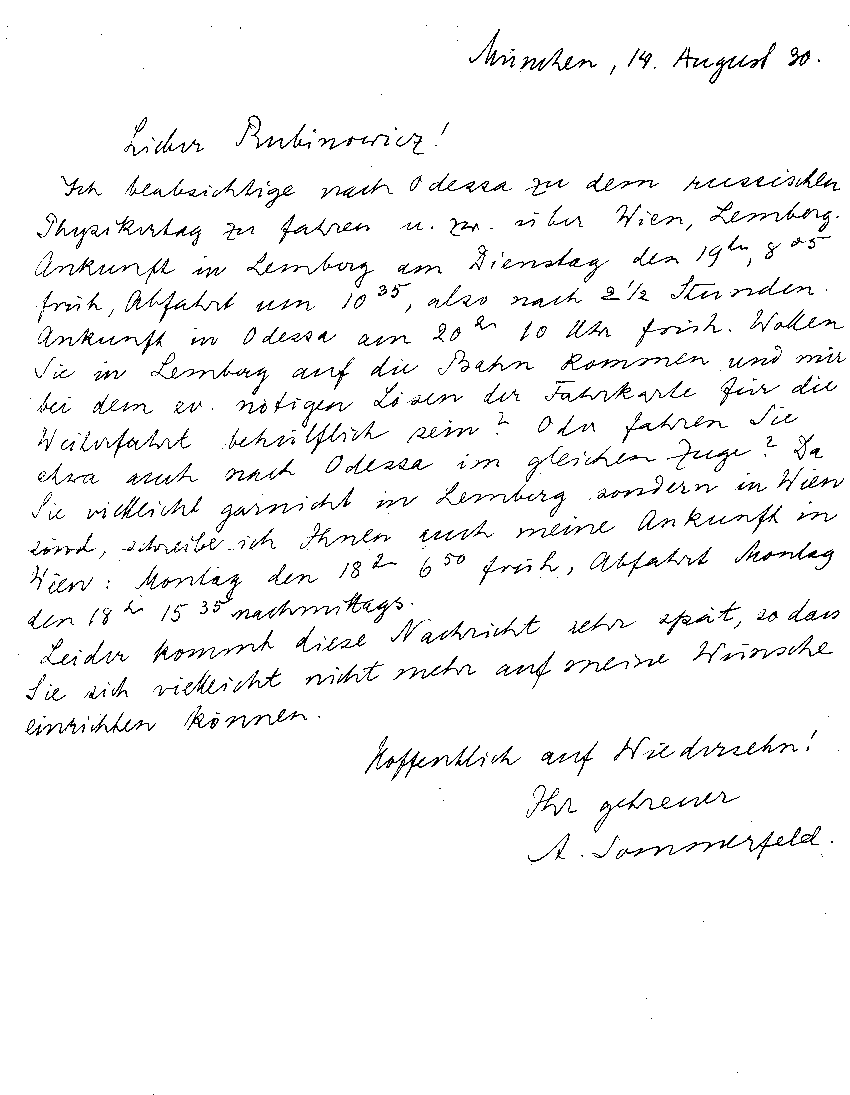 München, 14. August 30.
Lieber Rubinowicz!
Ich beabsichtige nach Odessa zu dem russischen
Physikertag zu fahren u. zw. über Wien, Lemberg.
Ankunft in Lemberg am Dienstag den 19ten, 8 05
früh, Abfahrt um 10 35, also nach 2 1/2 Stunden.
Ankunft in Odessa am 20ten 10 Uhr früh. Wollen
Sie in Lemberg auf die Bahn kommen und mir
bei dem ev. nötigen Lösen der Fahrkarte für die
Weiterfahrt behülflich sein? Oder fahren Sie
etwa auch nach Odessa im gleichen Zuge? Da
Sie vielleicht garnicht in Lemberg sondern in Wien
sind, schreibe ich Ihnen auch meine Ankunft in
Wien: Montag den 18ten 6 50 früh, Abfahrt Montag
den 18ten 15 35 nachmittags.
Leider kommt diese Nachricht sehr spät, so dass
Sie sich vielleicht nicht mehr auf meine Wünsche
einrichten können.
Hoffentlich auf Wiedersehn!
Ihr getreuer
A. Sommerfeld.